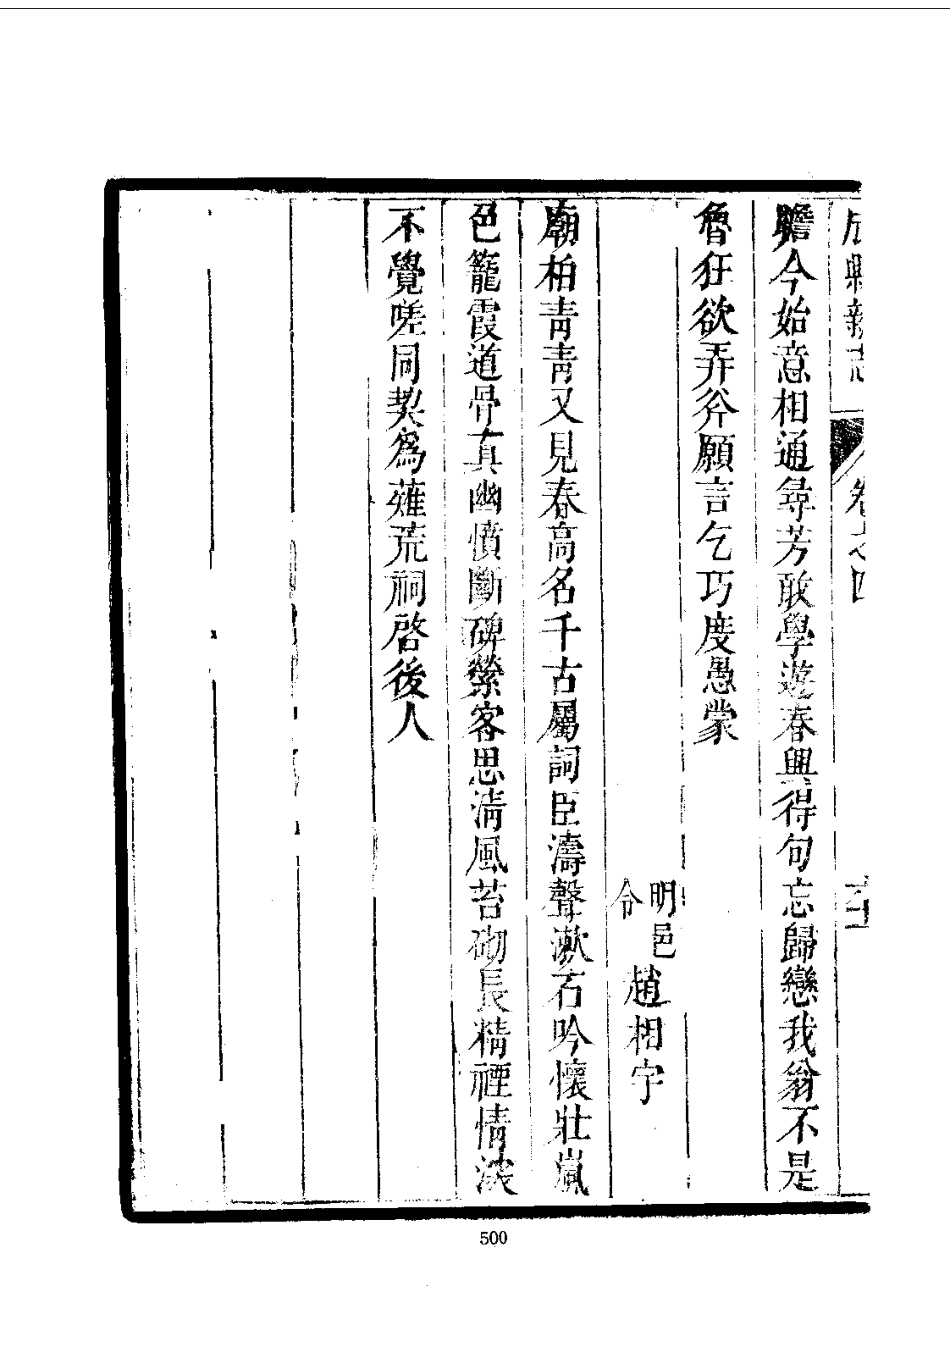 成縣新志 卷之四
瞻今始意相通尋芳敢學遊春興得句忘歸戀我翁不是
魯狂欲弄斧願言乞巧度愚蒙
明邑令 趙相宇
廟柏青青又見春高名千古屬詞臣濤聲漱石吟懷壯嵐
色籠霞道骨真幽憤斷碑縈客思清風苔砌長精禋情深
不覺嗟同契為薙荒祠啓後人
500